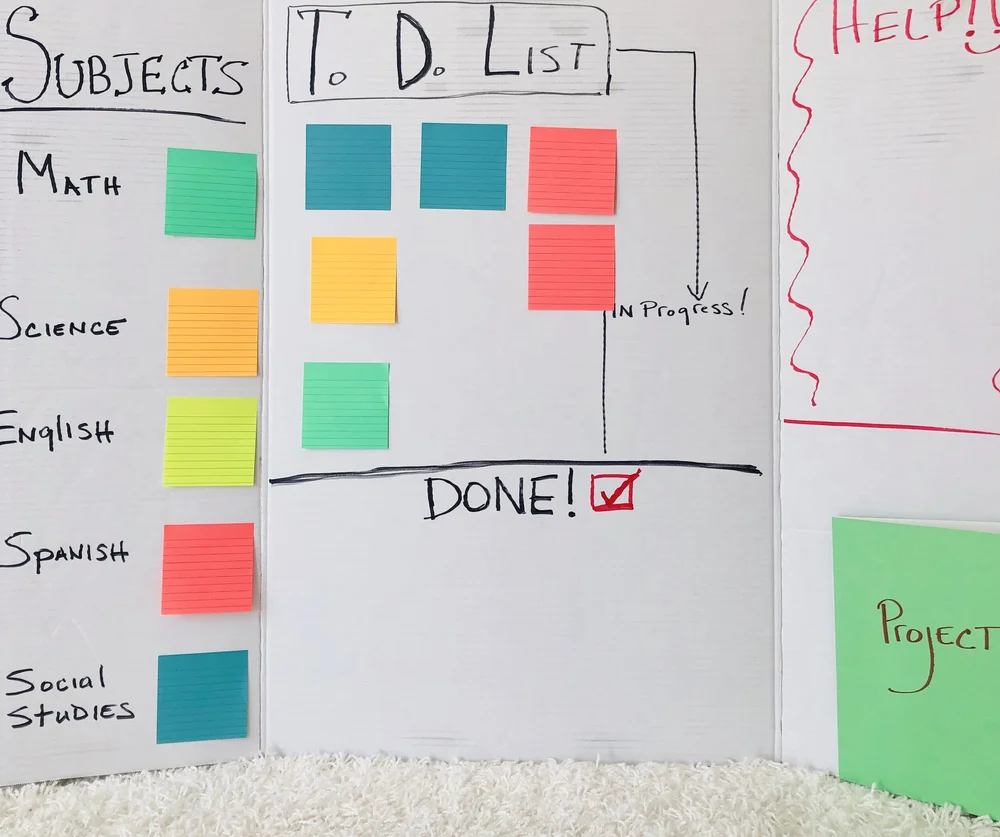 SUBJECTS
MATH
SCIENCE
ENglisH
SPANISH
Social
StuDIES
T. D. LIST
IN Progress!
DONE!
HELP!!
ProjECT